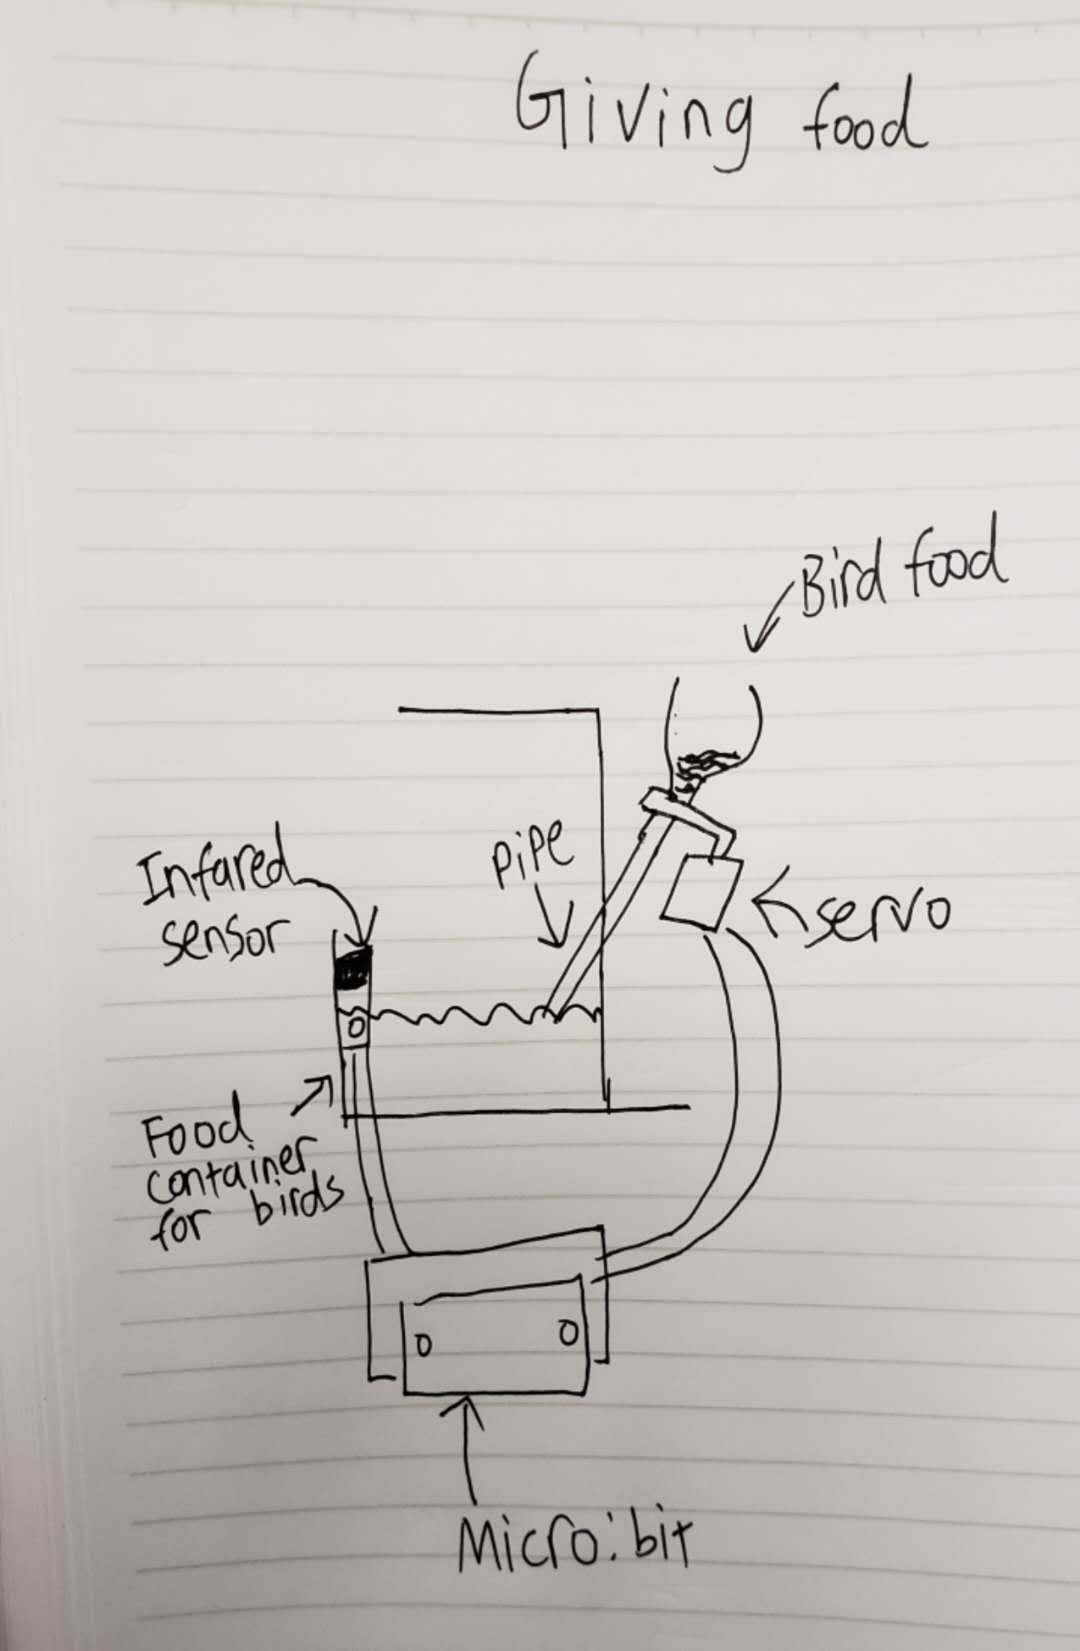 Giving food
Bird food
Pipe
Infared
sensor
servo
Food
container
for birds
Micro:bit